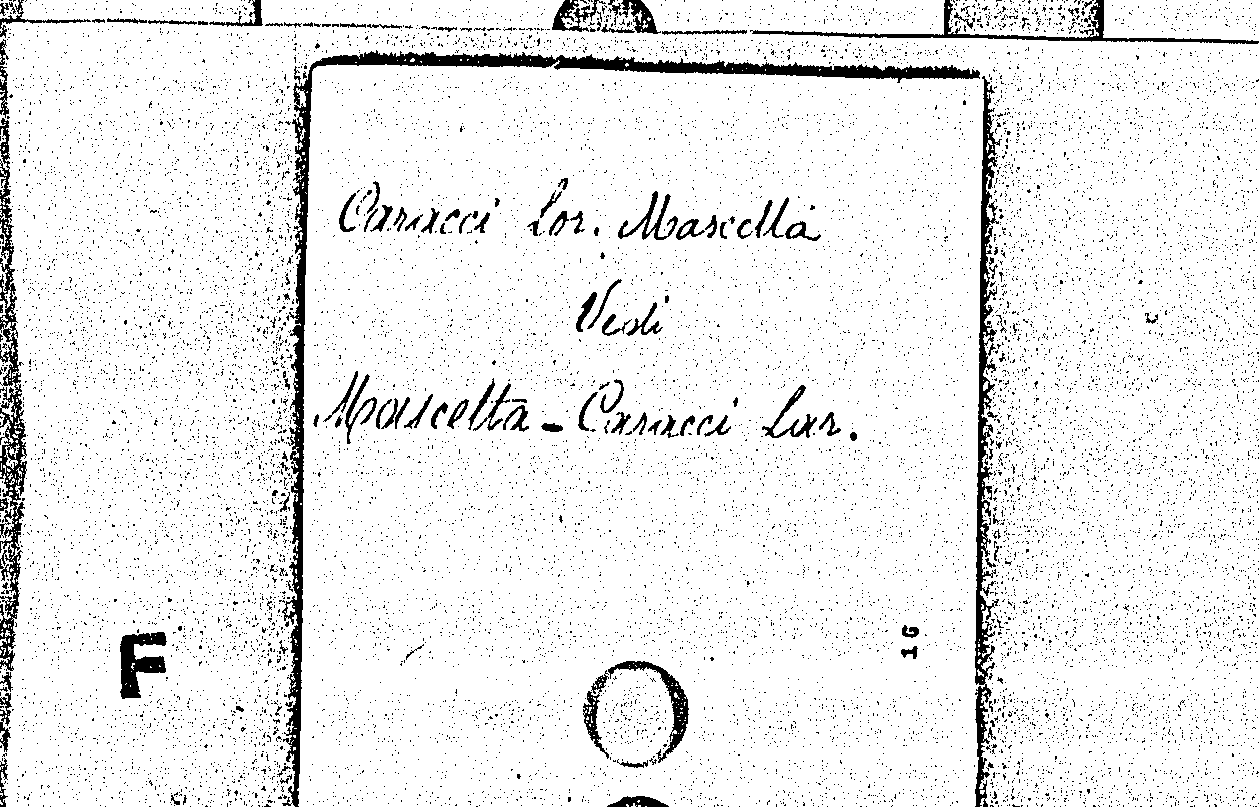 Caracci Lor. Mascetta
Vedi
Mascetta - Caracci Lor.
F
1G